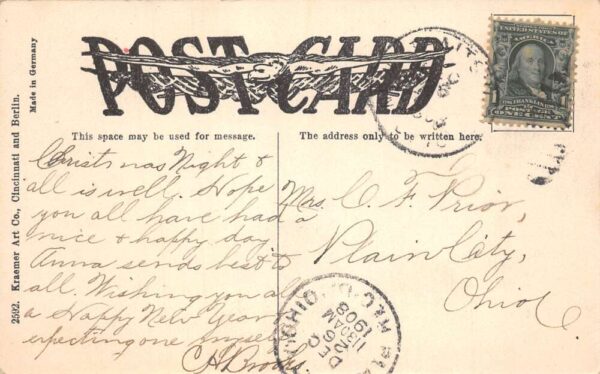 POST CARD
This space may be used for message.
The address only to be written here.
Christmas Night &
all is well. Hope
you all have had a
nice & happy day
Anna sends best to
all. Wishing you all
a Happy New Year
expecting one myself
C H Brooks
Mrs. C. F. Prior,
Plain City,
Ohio
2592. Kraemer Art Co., Cincinnati and Berlin.
Made in Germany
UNITED STATES OF AMERICA
FRANKLIN
ONE CENT
OHIO.
DEC
26
1130AM
1908